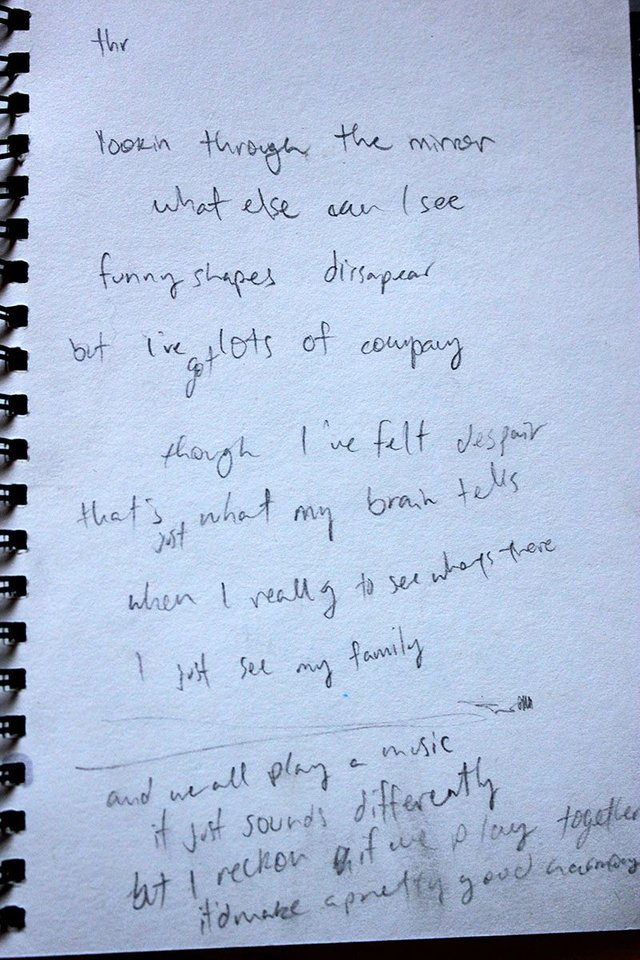 thr
lookin through the mirror
what else can I see
funny shapes dissapear
but i've got lots of company
though I've felt despair
that's just what my brain tells
when I really to see what's there
I just see my family
and we all play a music
it just sounds differently
but I reckon if we play together
it'd make a pretty good harmony